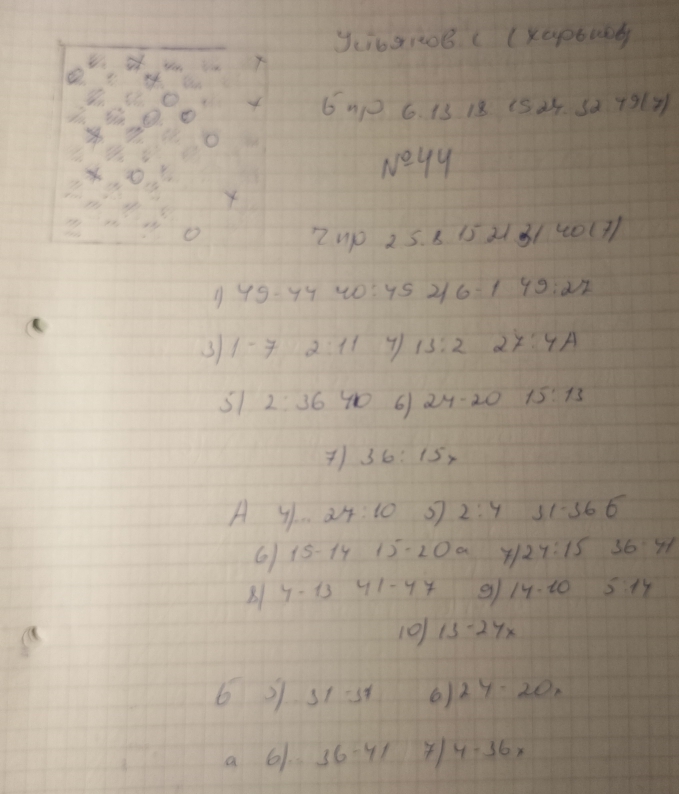 Устьянов С (Харьков)
б пр 6. 13 18 19 24. 32 49 (7)
№ 44
Ч пр 2 5. 8 15 21 31 40 (7)
1) 49-44 40:49 2) 6-1 49:27
3) 1-7 2:11 4) 13:2 27:4 А
5) 2:36 40 6) 24-20 15:13
7) 36:15x
А 4)... 27:10 5) 2:4 31-36 б
6) 15-14 15-20 а 7) 24:15 36-41
8) 4-13 41-47 9) 14-10 5:14
10) 13-24x
б 5)... 31-37 6) 24-20x
а 6)... 36-41 7) 4-36x